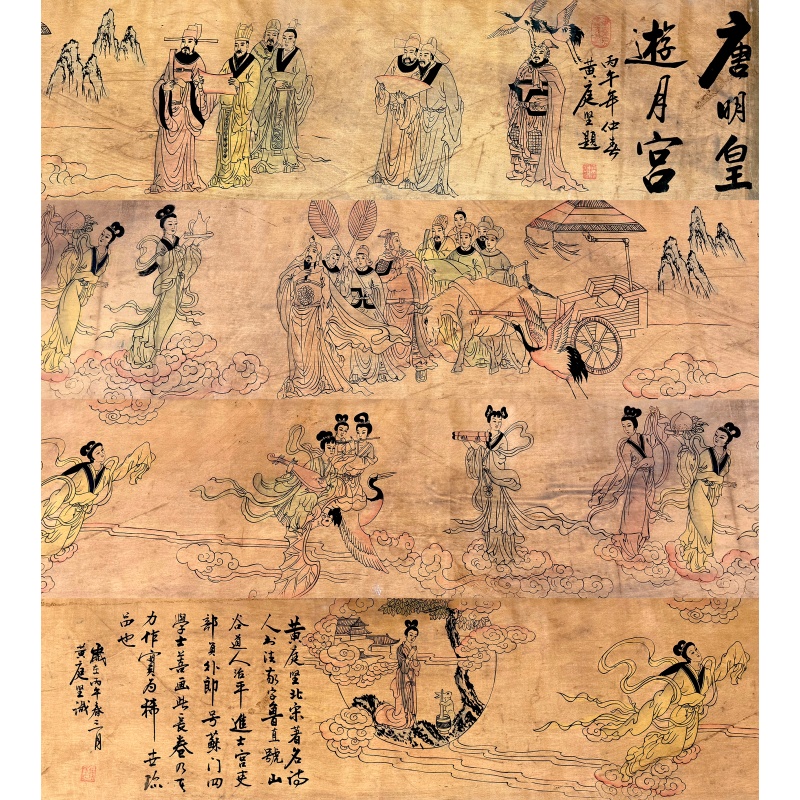 唐明皇
遊月宮
丙午年仲春
黄庭坚題
黄庭坚北宋著名诗
人书法家字魯直號山
谷道人治平進士官吏
部員外郎号蘇门四
學士善画此長卷乃其
力作實为稀世珍
品也
歲在丙午春三月
黄庭坚識